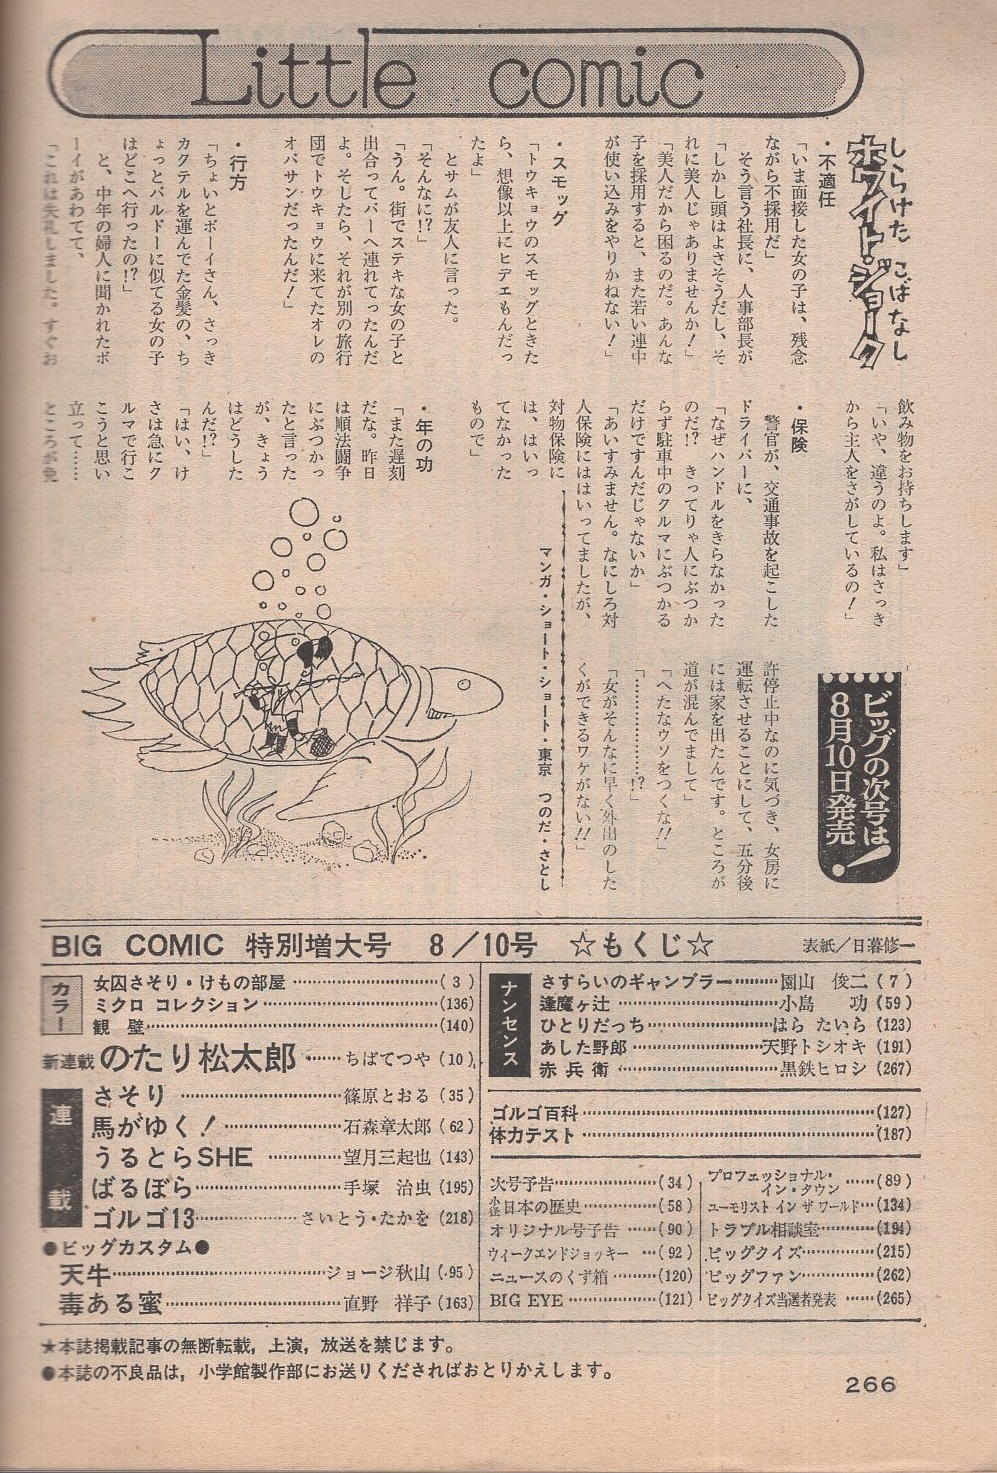 Little comic
しらけた こばなし
ホワイト・ジョーク
・不適任
「いま面接した女の子は、残念
ながら不採用だ」
そう言う社長に、人事部長が
「しかし頭はよさそうだし、そ
れに美人じゃありませんか！」
「美人だから困るのだ。あんな
子を採用すると、また若い連中
が使い込みをやりかねない！」
・スモッグ
「トウキョウのスモッグときた
ら、想像以上にヒデエもんだっ
たよ」
とサムが友人に言った。
「そんなに!?」
「うん。街でステキな女の子と
出合ってバーへ連れてったんだ
よ。そしたら、それが別の旅行
団でトウキョウに来てたオレの
オバサンだったんだ！」
・行方
「ちょいとボーイさん、さっき
カクテルを運んでた金髪の、ち
ょっとバルドーに似てる女の子
はどこへ行ったの!?」
と、中年の婦人に聞かれたボ
ーイがあわてて、
「これは失礼しました。すぐお
飲み物をお持ちします」
「いや、違うのよ。私はさっき
から主人をさがしているの！」
・保険
警官が、交通事故を起こした
ドライバーに、
「なぜハンドルをきらなかった
のだ!? きってりゃ人にぶつか
らず駐車中のクルマにぶつかる
だけですんだじゃないか」
「あいすみません。なにしろ対
人保険にははいってましたが、
対物保険に
は、はいっ
てなかった
もので」
・年の功
「また遅刻
だな。昨日
は順法闘争
にぶつかっ
たと言った
が、きょう
はどうした
んだ!?」
「はい、け
さは急にク
ルマで行こ
こうと思い
立って……
ところが免
許停止中なのに気づき、女房に
運転させることにして、五分後
には家を出たんです。ところが
道が混んでまして」
「へたなウソをつくな!!」
「……………!?
「女がそんなに早く外出のした
くができるワケがない!!」
マンガ・ショート・ショート・東京 つのだ・さとし
ビッグの次号は
8月10日発売!
BIG COMIC 特別増大号 8／10号 ☆もくじ☆ 表紙／日暮修一
カラー
女囚さそり・けもの部屋……(3)
ミクロ コレクション……(136)
観 壁……(140)
新連載 のたり松太郎……ちばてつや(10)
連載
さそり……篠原とおる(35)
馬がゆく！……石森章太郎(62)
うるとらSHE……望月三起也(143)
ばるぼら……手塚 治虫(195)
ゴルゴ13……さいとう・たかを(218)
●ビッグカスタム●
天牛……ジョージ秋山(95)
毒ある蜜……直野 祥子(163)
ナンセンス
さすらいのギャンブラー……園山 俊二(7)
逢魔ヶ辻……小島 功(59)
ひとりだっち……はら たいら(123)
あした野郎……天野トシオキ(191)
赤兵衛……黒鉄ヒロシ(267)
ゴルゴ百科……(127)
体力テスト……(187)
次号予告……(34)
日本の歴史……(58)
オリジナル号予告……(90)
ウィークエンドジョッキー…(92)
ニュースのくず箱……(120)
BIG EYE……(121)
プロフェッショナル・
イン・タウン……(89)
ユーモリスト イン ザ ワールド…(134)
トラブル相談室……(194)
ビッグクイズ……(215)
ビッグファン……(262)
ビッグクイズ当選者発表……(265)
★本誌掲載記事の無断転載，上演，放送を禁じます。
●本誌の不良品は，小学館製作部にお送りくださればおとりかえします。
266